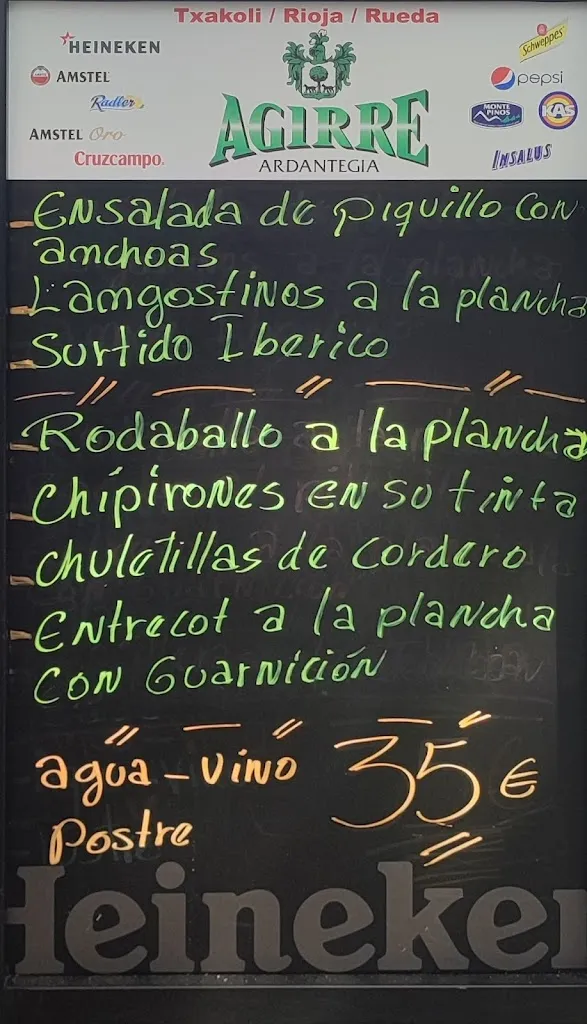 Txakoli / Rioja / Rueda
HEINEKEN
AMSTEL
Radler
AMSTEL Oro
Cruzcampo.
AGIRRE
ARDANTEGIA
Schweppes
pepsi
MONTE PINOS
KAS
INSALUS
- Ensalada de piquillo con
anchoas
- Langostinos a la plancha
- Surtido Iberico
- Rodaballo a la plancha
- Chipirones en su tinta
- Chuletillas de cordero
- Entrecot a la plancha
con Guarnición
agua - vino 35 €
Postre
Heineken